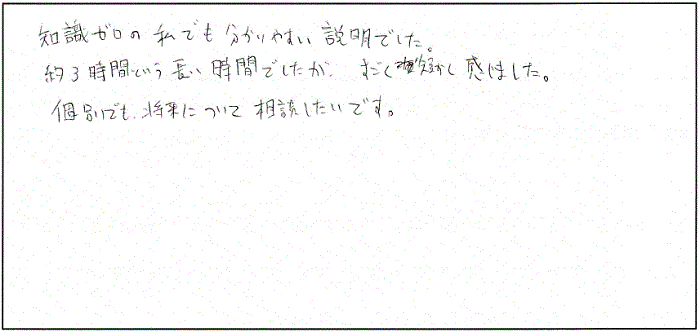 知識ゼロの私でも分かりやすい説明でした。
約3時間という長い時間でしたが、すごく短かく感じました。
個別でも、将来について相談したいです。